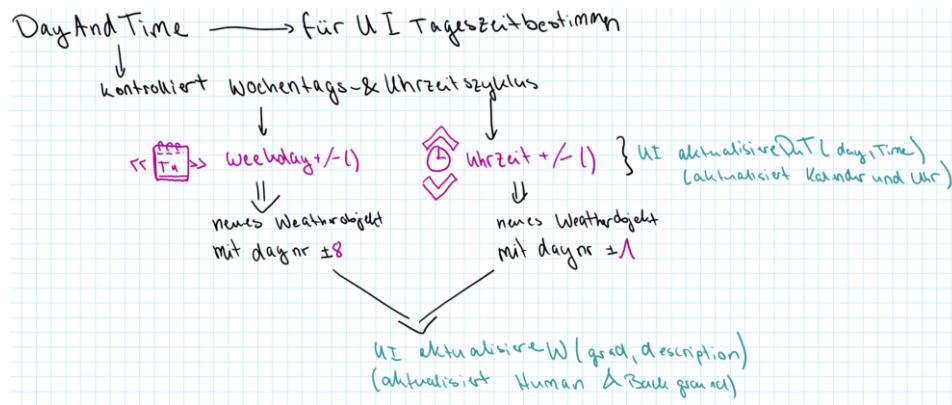 DayAndTime → für UI Tageszeitbestimmen
kontrolliert Wochentags-& Uhrzeitszyklus
<< Tu >> weekday+/-()
Uhrzeit +/-()
} UI aktualisiereDnT(day,Time)
(aktualisiert Kalender und Uhr)
neues Weatherobjekt
mit daynr ±8
neues Weatherobjekt
mit daynr ±1
UI aktualisiereW(grad, description)
(aktualisiert Human & Background)